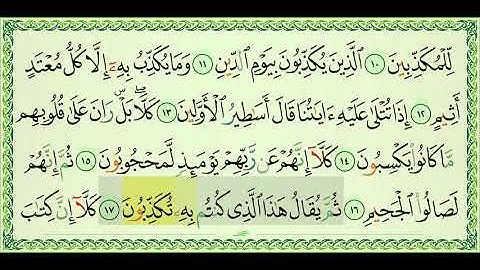 لِّلْمُكَذِّبِينَ ١٠ ٱلَّذِينَ يُكَذِّبُونَ بِيَوْمِ ٱلدِّينِ ١١ وَمَا يُكَذِّبُ بِهِۦٓ إِلَّا كُلُّ مُعْتَدٍ
أَثِيمٍ ١٢ إِذَا تُتْلَىٰ عَلَيْهِ ءَايَٰتُنَا قَالَ أَسَٰطِيرُ ٱلْأَوَّلِينَ ١٣ كَلَّا ۖ بَلْ ۜ رَانَ عَلَىٰ قُلُوبِهِم
مَّا كَانُوا۟ يَكْسِبُونَ ١٤ كَلَّآ إِنَّهُمْ عَن رَّبِّهِمْ يَوْمَئِذٍ لَّمَحْجُوبُونَ ١٥ ثُمَّ إِنَّهُمْ
لَصَالُوا۟ ٱلْجَحِيمِ ١٦ ثُمَّ يُقَالُ هَٰذَا ٱلَّذِى كُنتُم بِهِۦ تُكَذِّبُونَ ١٧ كَلَّآ إِنَّ كِتَٰبَ